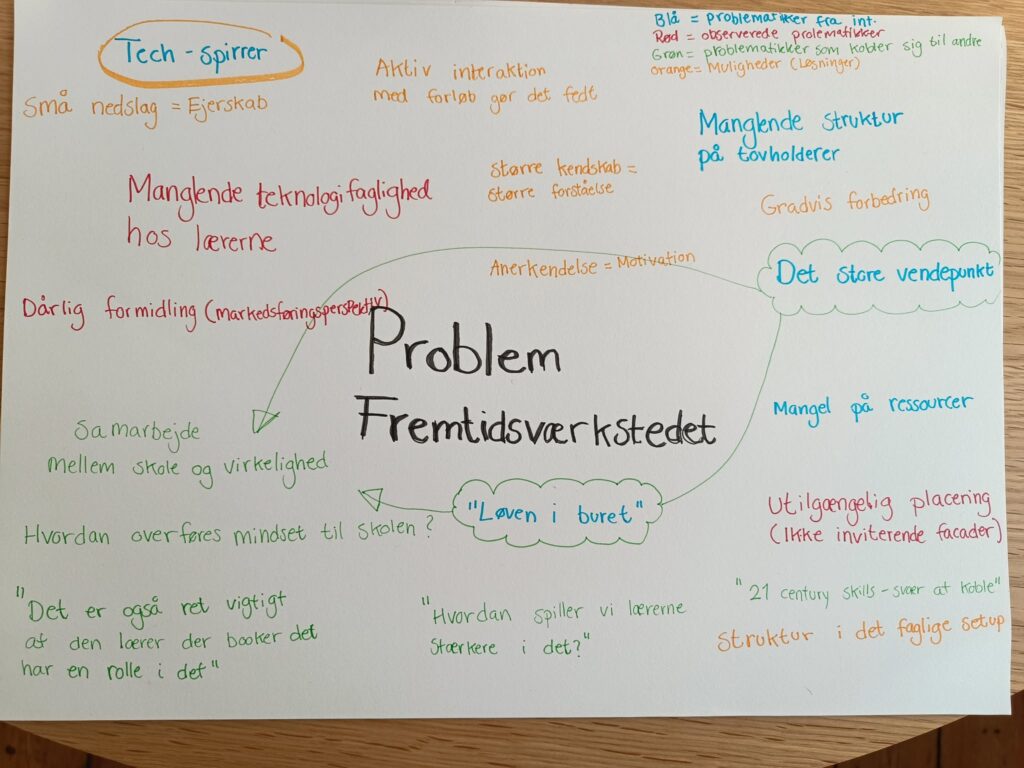 Blå = problematikker fra int.
Rød = observerede prolematikker
Grøn = problematikker som kobler sig til andre
orange = Muligheder (Løsninger)
Tech - spirrer
Små nedslag = Ejerskab
Aktiv interaktion
med forløb gør det fedt
Manglende struktur
på tovholderer
Manglende teknologifaglighed
hos lærerne
større kendskab =
større forståelse
Gradvis forbedring
Anerkendelse = Motivation
Det store vendepunkt
Dårlig formidling (markedsføringsperspektiv)
Problem
Fremtidsværkstedet
Mangel på ressourcer
Samarbejde
mellem skole og virkelighed
"Løven i buret"
Utilgængelig placering
(Ikke inviterende facader)
Hvordan overføres mindset til skolen?
"Det er også ret vigtigt
at den lærer der booker det
har en rolle i det"
"Hvordan spiller vi lærerne
stærkere i det?"
"21 century skills - svær at koble"
Struktur i det faglige setup